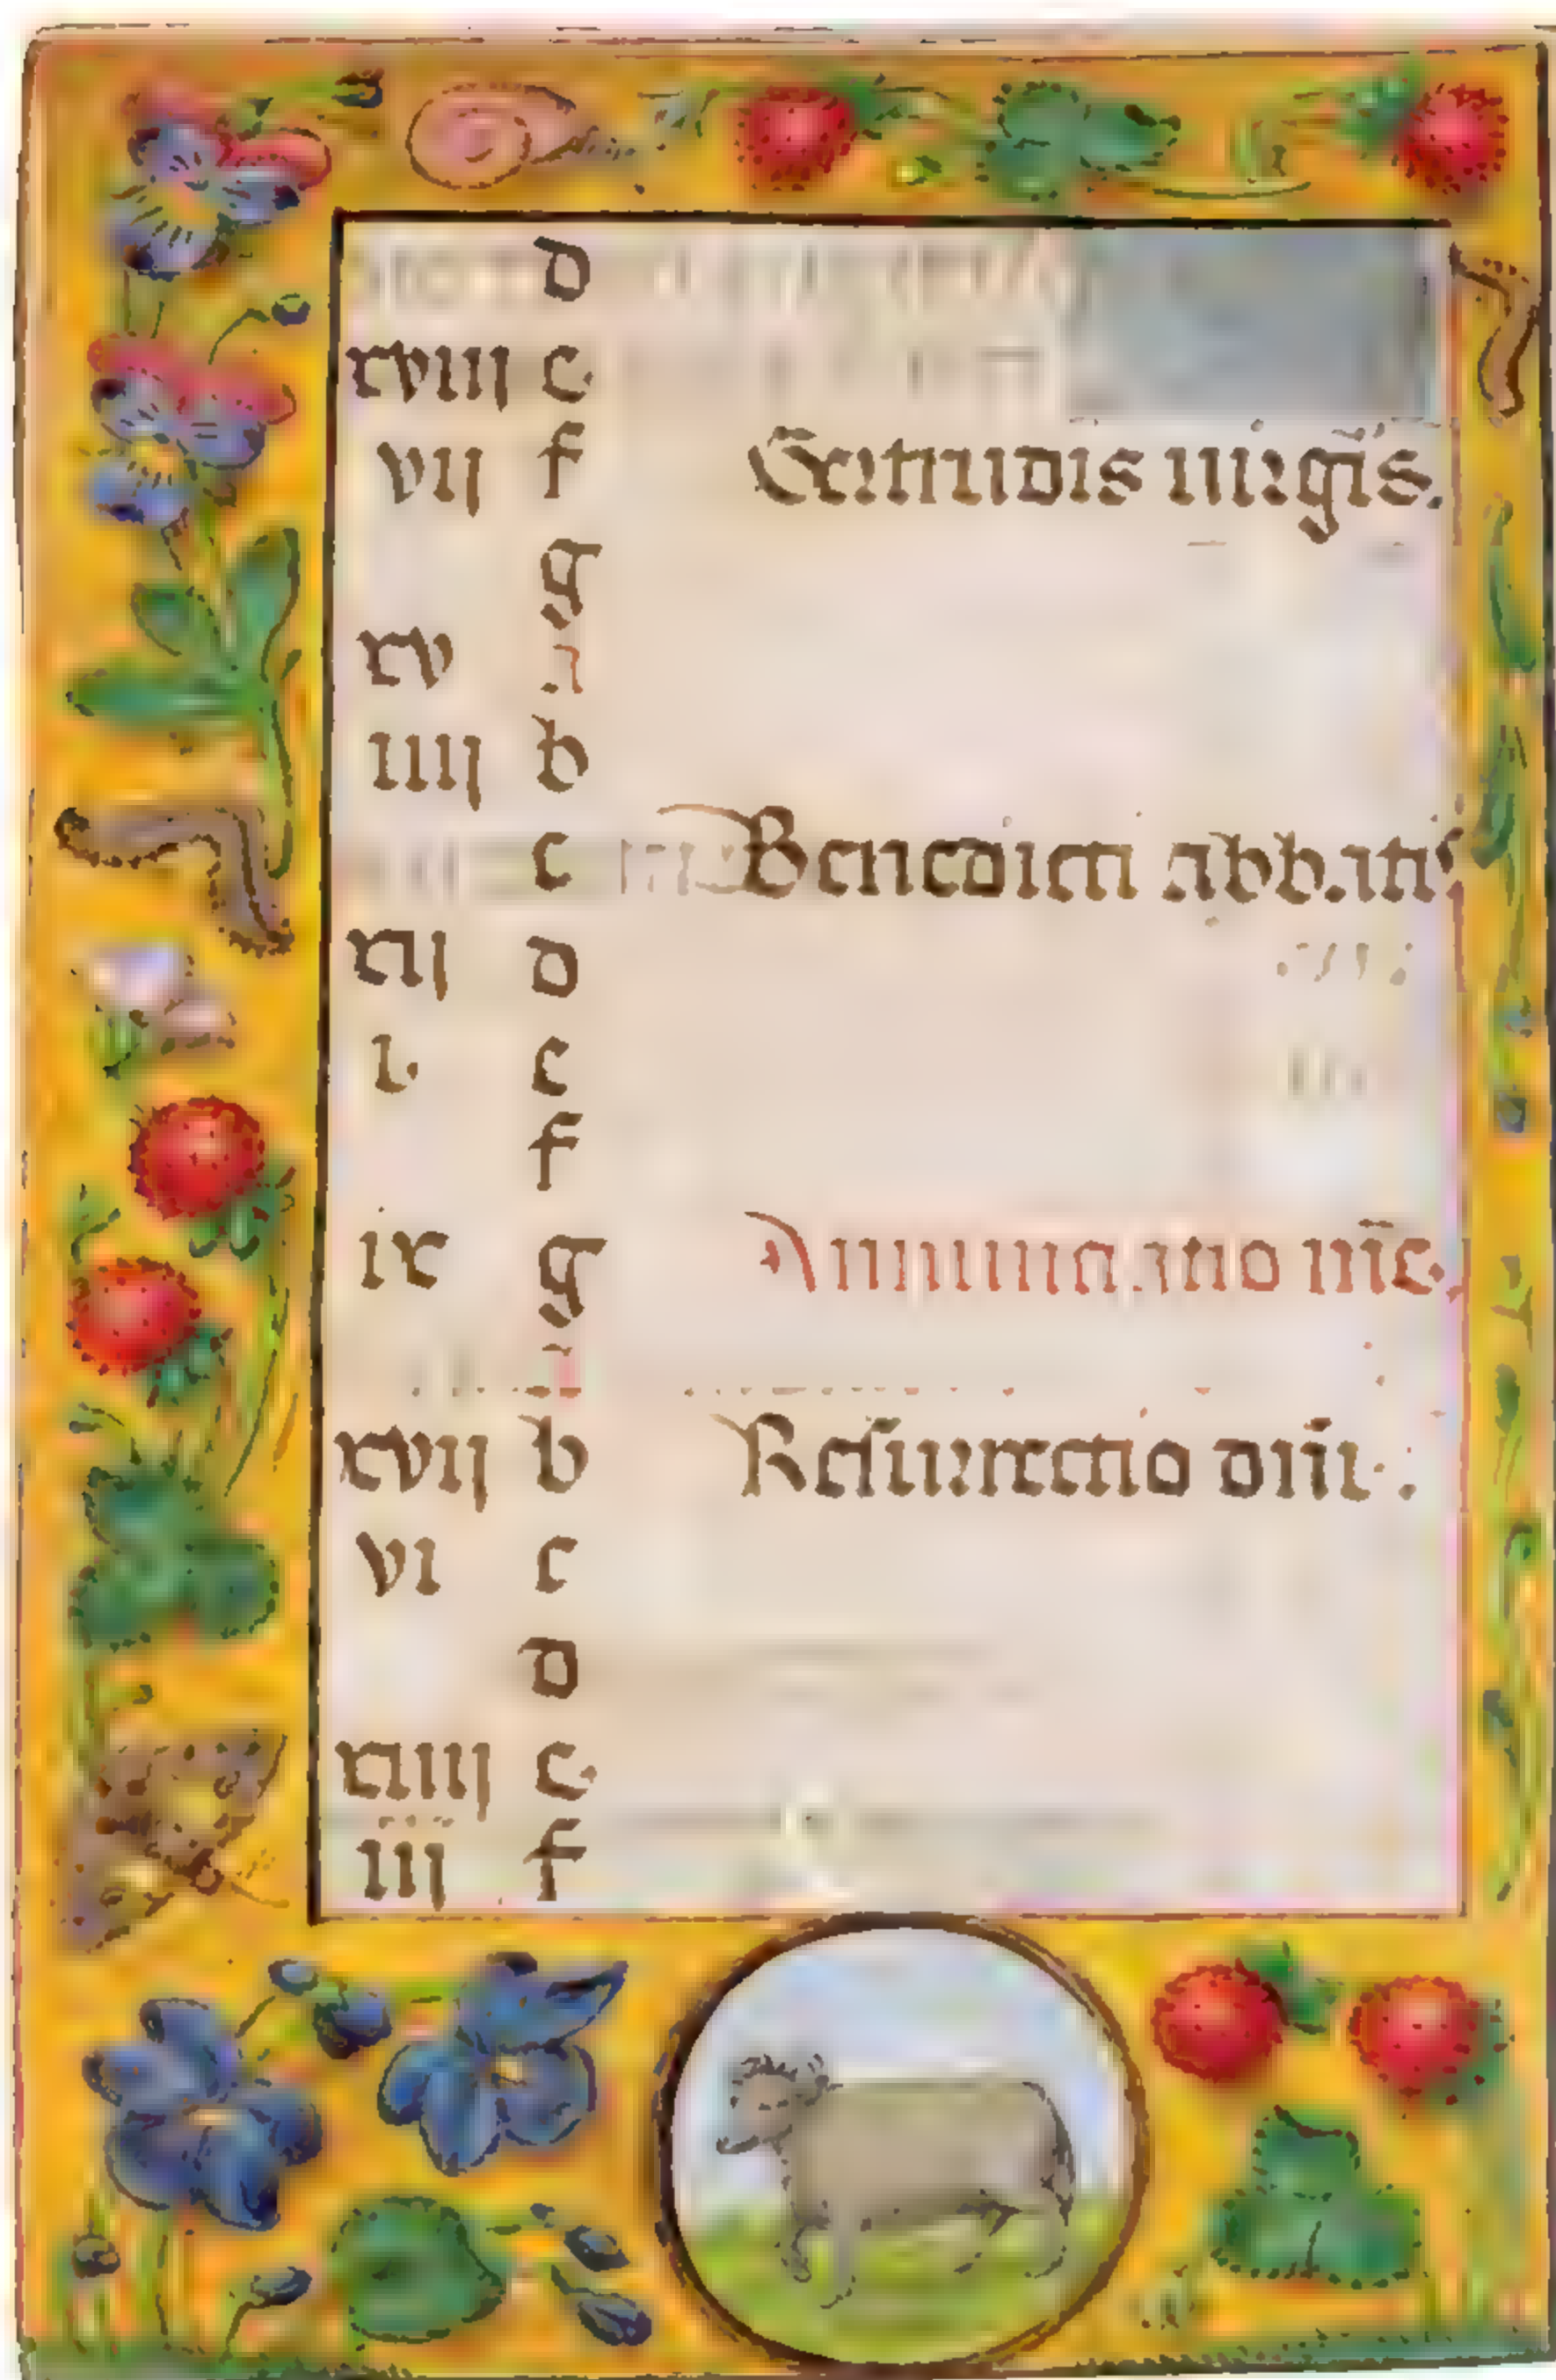 d
xviij e
vij f Gertrudis uirgīs.
g
xv a
iiij b
c Benedicti abbatis
xij d
i. e
f
ix g Annunciatio mīe.
xvij b Resurrectio dnī.
vi c
d
xiiij e
iij f